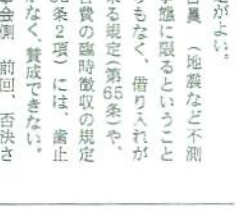 がよい。
員　（地震など不測
事態に限るということ
りもなく、借り入れが
来る規定（第65条）や、
費の臨時徴収の規定
条２項）には、歯止
なく、賛成できない。
会側　前回、否決さ